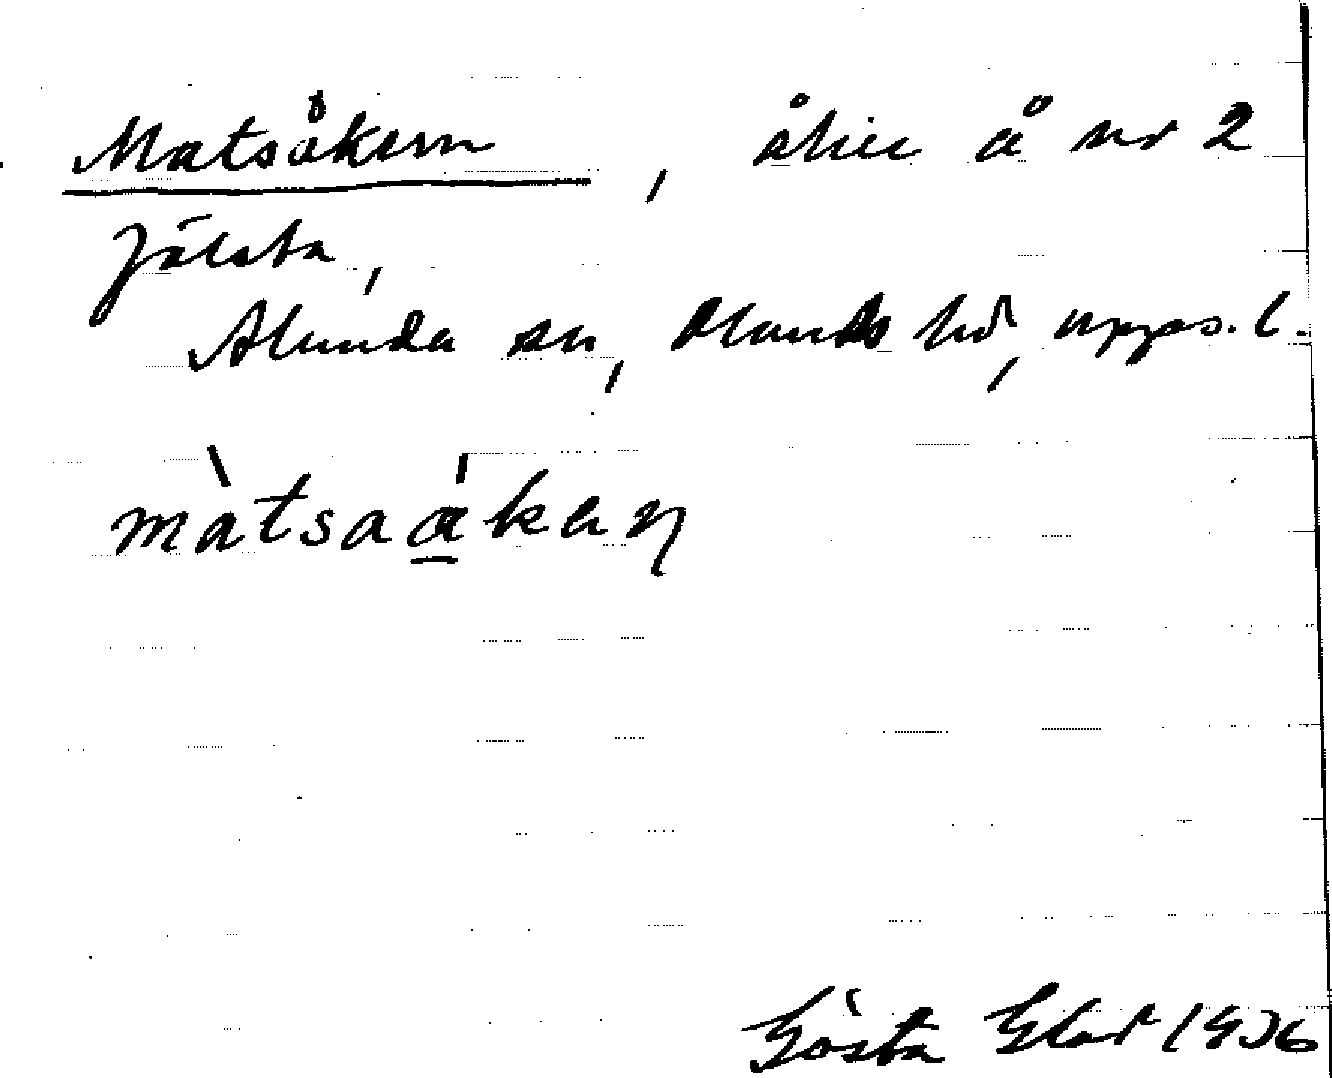 Matsåkern, åker å nr 2
Jälsta,
Alunda sn, Olands hd, Upps. l.
màtsaákaṇ
Gösta